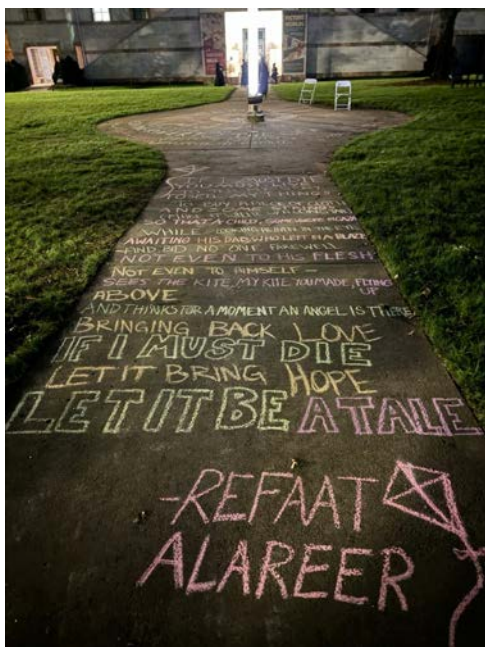 IF I MUST DIE
YOU MUST LIVE
SO THAT A CHILD, SOMEWHERE IN GAZA
WHILE LOOKING HEAVEN IN THE EYE
AWAITING HIS DAD WHO LEFT IN A BLAZE
-AND BID NO ONE FAREWELL
NOT EVEN TO HIS FLESH
NOT EVEN TO HIMSELF-
SEES THE KITE, MY KITE YOU MADE, FLYING
UP
ABOVE
AND THINKS FOR A MOMENT AN ANGEL IS THERE
BRINGING BACK LOVE
IF I MUST DIE
LET IT BRING HOPE
LET IT BE A TALE
-REFAAT
ALAREER